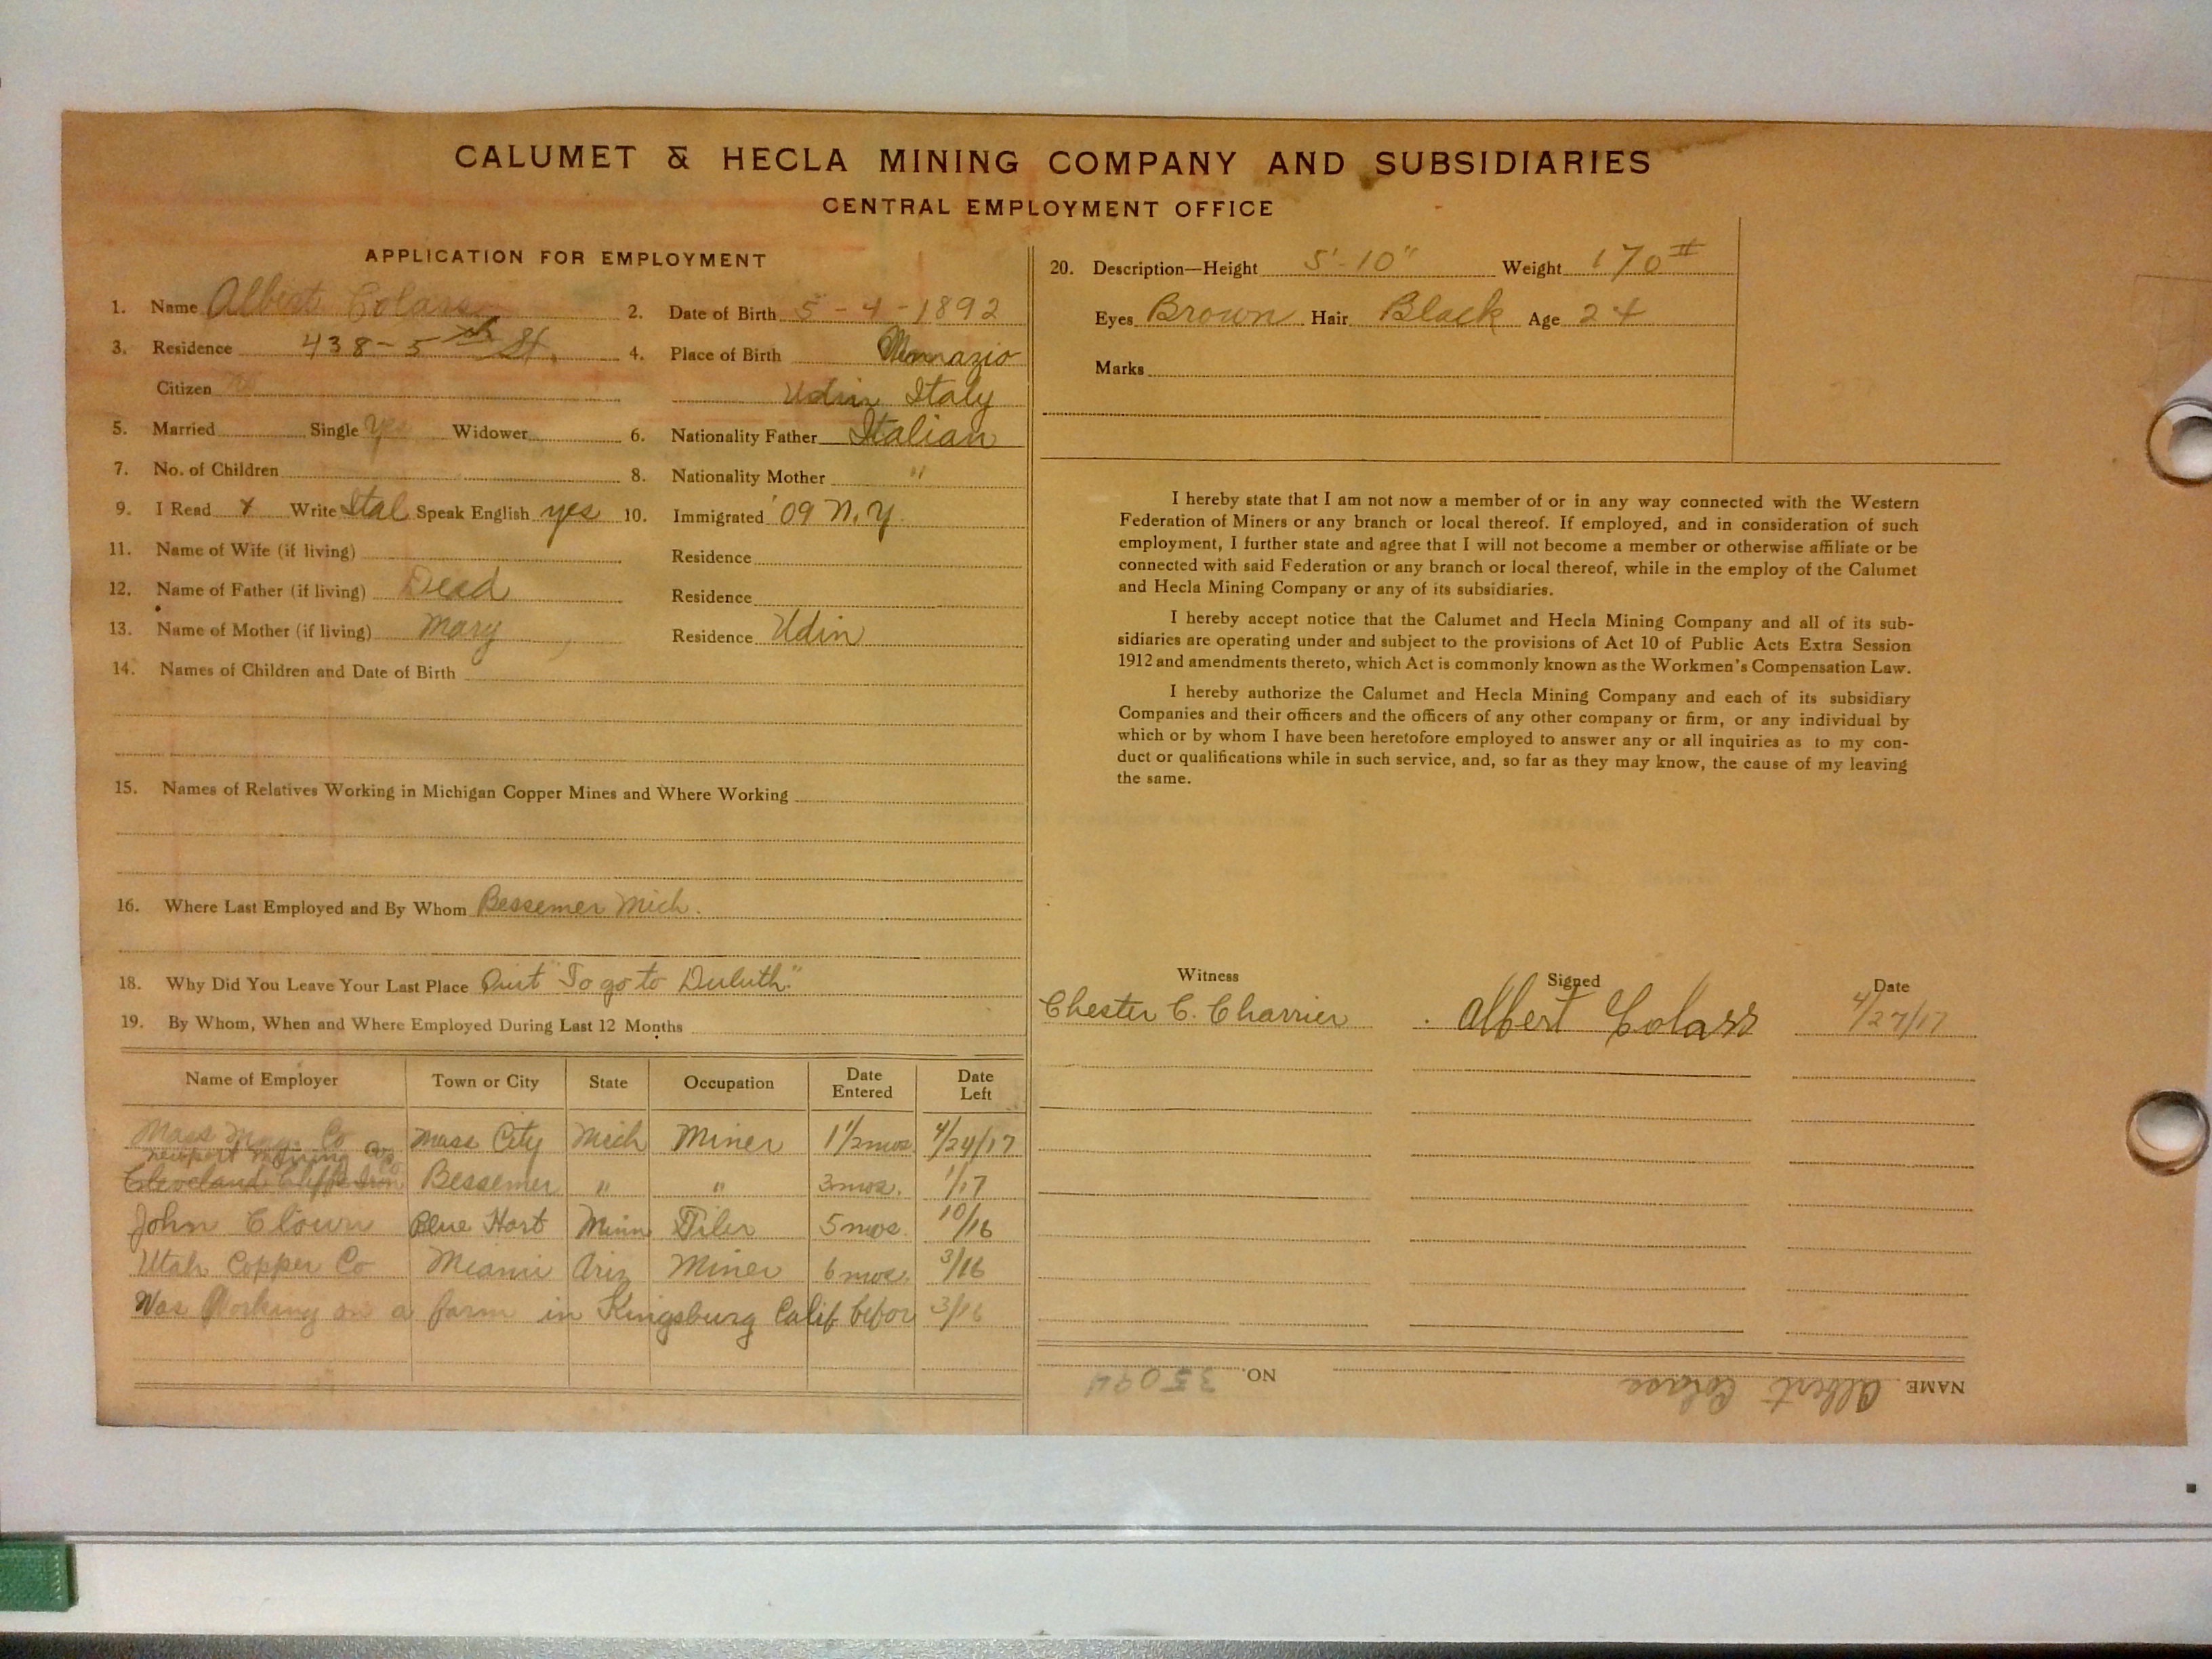 CALUMET & HECLA MINING COMPANY AND SUBSIDIARIES
CENTRAL EMPLOYMENT OFFICE
APPLICATION FOR EMPLOYMENT
1. Name Albert Colass
2. Date of Birth 5-4-1892
3. Residence 438-5th St.
4. Place of Birth
Citizen No
Udin Italy
5. Married Single Yes Widower
6. Nationality Father Italian
7. No. of Children
8. Nationality Mother "
9. I Read X Write Ital Speak English yes
10. Immigrated '09 N.Y
11. Name of Wife (if living) Residence
12. Name of Father (if living) Dead Residence
13. Name of Mother (if living) Mary Residence Udin
14. Names of Children and Date of Birth
15. Names of Relatives Working in Michigan Copper Mines and Where Working
16. Where Last Employed and By Whom Bessemer Mich.
18. Why Did You Leave Your Last Place Quit "To go to Duluth."
19. By Whom, When and Where Employed During Last 12 Months
Name of Employer Town or City State Occupation Date Entered Date Left
Mass Co Mass City Mich Miner 1 1/2 mos 4/24/17
Newport Mining Co
Cleveland Cliffs Iron Bessemer " " 3 mos. 1/17
John Clown Minn Tiler 5 mos 10/16
Utah Copper Co Miami Ariz Miner 6 mos. 3/16
Was Working on a farm in Kingsburg Calif befor 3/16
20. Description—Height 5'-10" Weight 170#
Eyes Brown Hair Black Age 24
Marks
I hereby state that I am not now a member of or in any way connected with the Western
Federation of Miners or any branch or local thereof. If employed, and in consideration of such
employment, I further state and agree that I will not become a member or otherwise affiliate or be
connected with said Federation or any branch or local thereof, while in the employ of the Calumet
and Hecla Mining Company or any of its subsidiaries.
I hereby accept notice that the Calumet and Hecla Mining Company and all of its sub-
sidiaries are operating under and subject to the provisions of Act 10 of Public Acts Extra Session
1912 and amendments thereto, which Act is commonly known as the Workmen's Compensation Law.
I hereby authorize the Calumet and Hecla Mining Company and each of its subsidiary
Companies and their officers and the officers of any other company or firm, or any individual by
which or by whom I have been heretofore employed to answer any or all inquiries as to my con-
duct or qualifications while in such service, and, so far as they may know, the cause of my leaving
the same.
Witness Signed Date
Chester C. Charrier Albert Colass 4/27/17
NAME Albert Colass NO. 35094